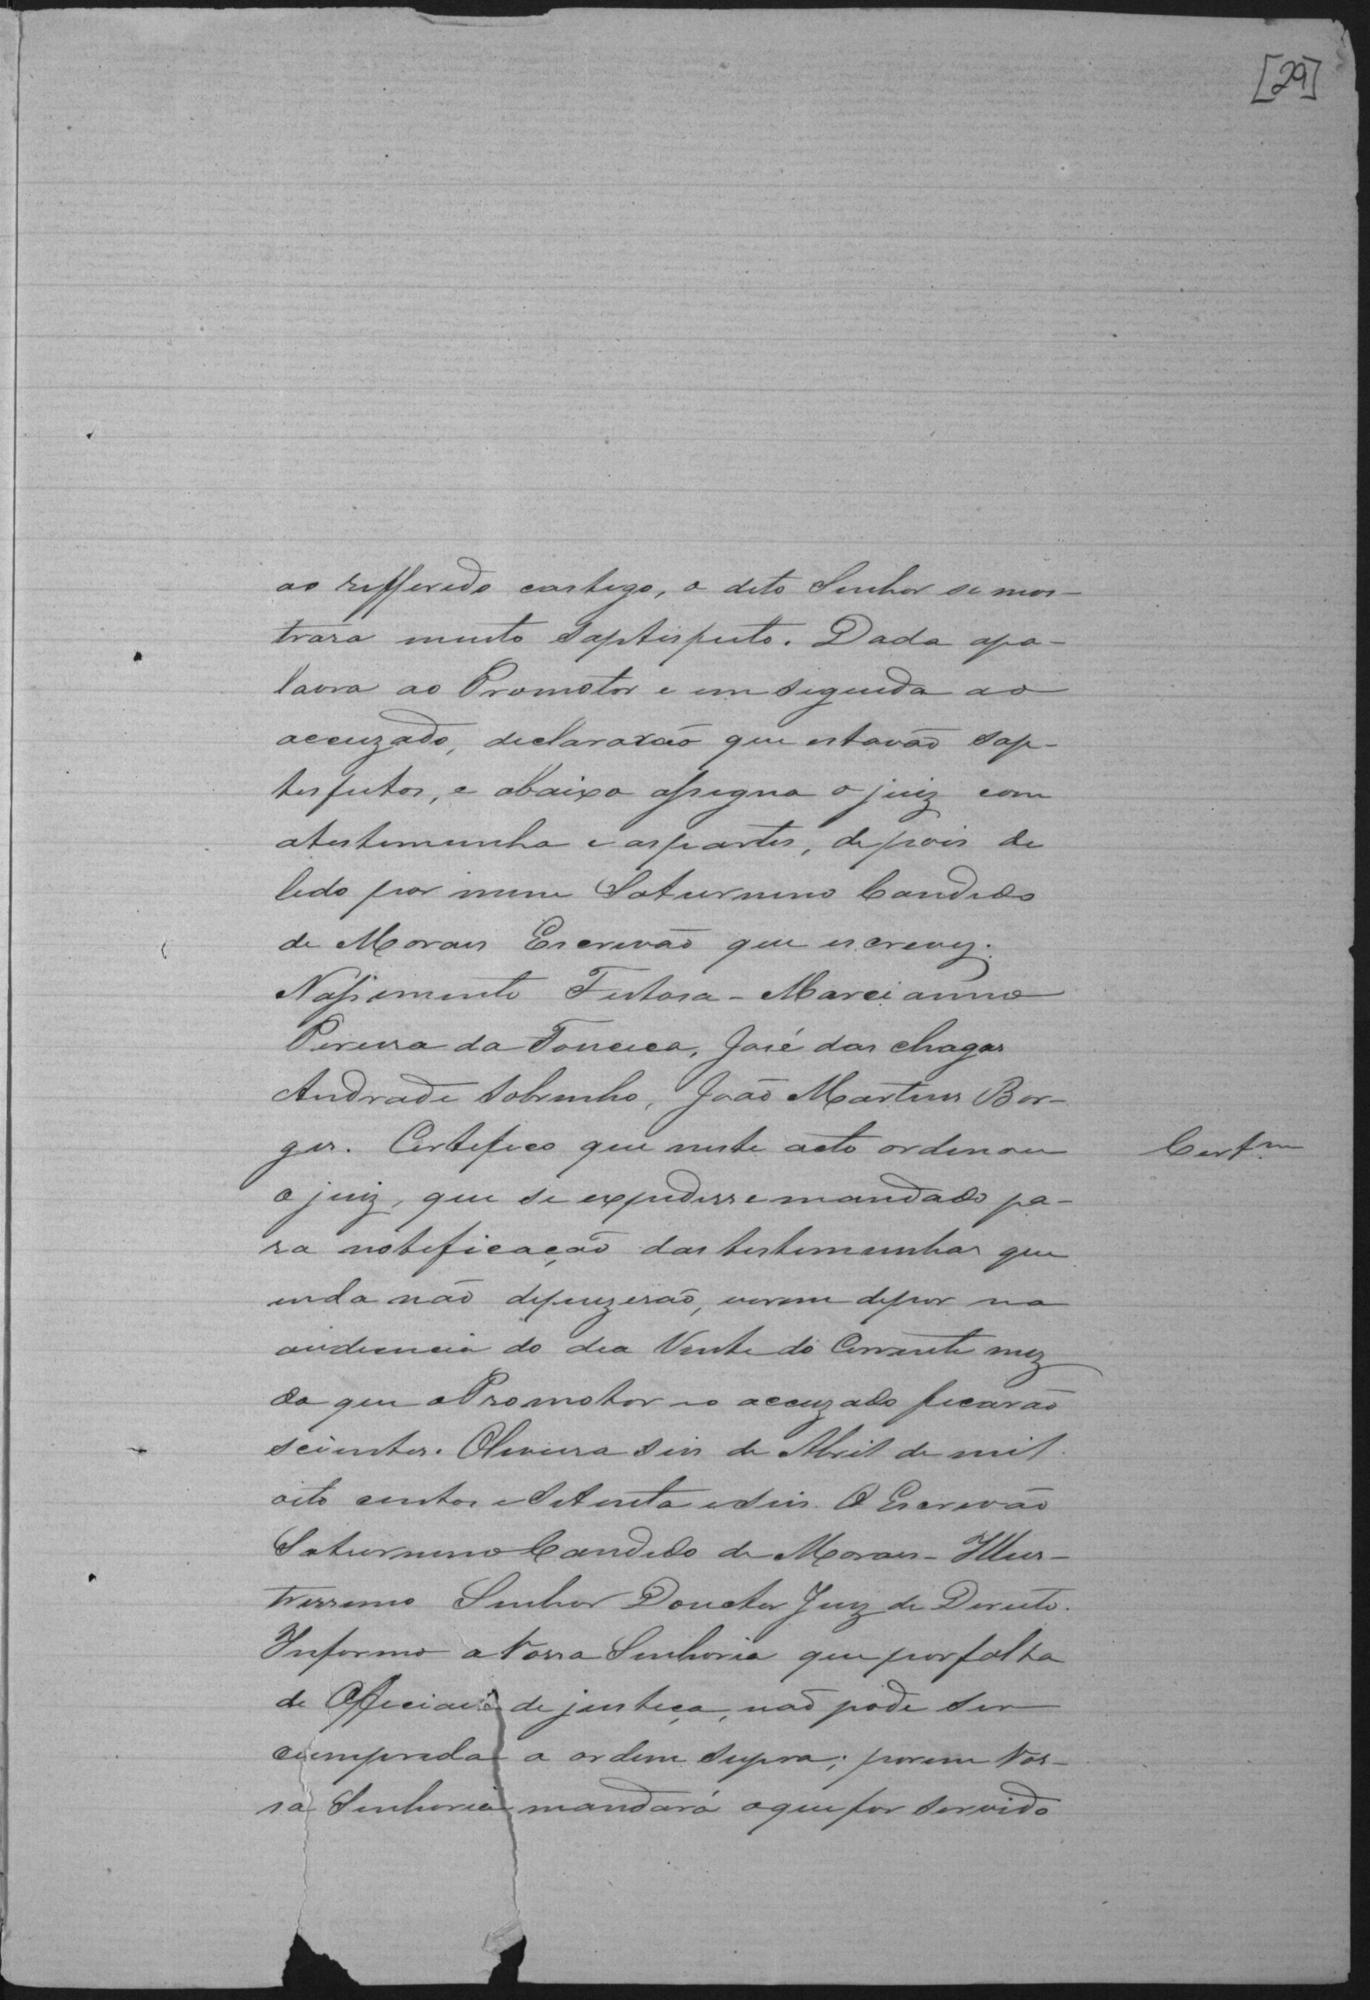 [29]
ao refferedo castego, o dito Senhor se mos-
trara muito saptisfeito. Dada apa-
lavra ao Promotor e em seguida ao
accuzado, declararão que estavão sap-
tesfeitos, e abaixo assegna o juiz com
atestemunha e aspartes, depois de
lido por mim Saturnino Candido
de Moraes Escrevão que escrevy.
Nassimento Feitosa - Marcianno
Pereira da Fonceca, José das chagas
Andrade Sobrinho, João Martins Bor-
ges. Certefico que neste acto ordenou
Certm
o juiz, que se expedisse mandado pa-
ra notificação das testemunhas que
inda não depuzerão, virem depor na
audiencia do dia Vinte do Corrente mez
do que o Promotor e o accuzado ficarão
scientes. Oliveira seis de Abril de mil
oito centos e Setenta e seis. O Escrevão
Saturnino Candido de Moraes - Illus-
trissemo Senhor Douctor Juiz de Dereito.
Informo a Vossa Senhoria que por falta
de Officiaes de justiça, não pode ser
cumprida a ordem supra; porem Vos-
sa Senhoria mandará oque for servido